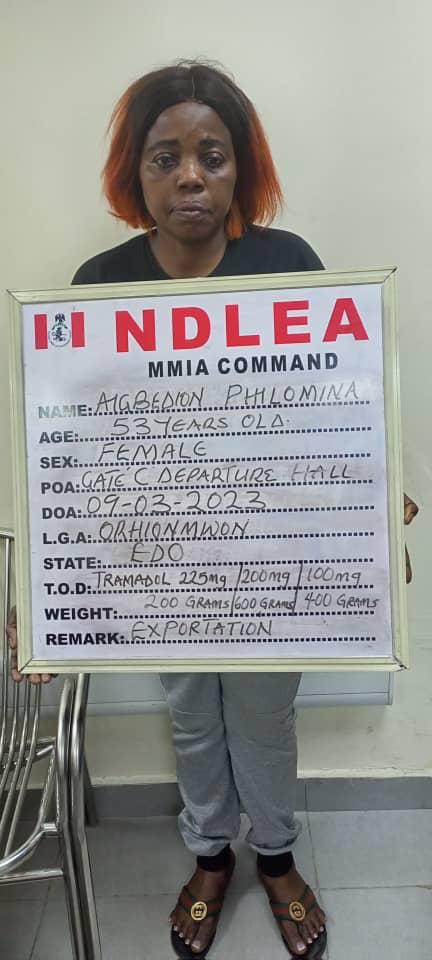 NDLEA
MMIA COMMAND
NAME: AIGBEDION PHILOMINA
AGE: 53 YEARS OLD.
SEX: FEMALE
POA: GATE C DEPARTURE HALL
DOA: 09-03-2023
L.G.A: ORHIONMWON
STATE: EDO
T.O.D: TRAMADOL 225mg / 200mg / 100mg
WEIGHT: 200 GRAMS / 600 GRAMS / 400 GRAMS
REMARK: EXPORTATION